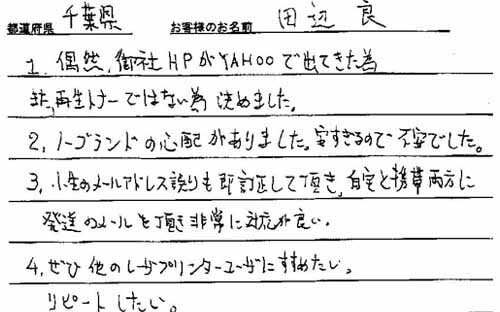 都道府県 千葉県 お客様のお名前 田辺 良
1. 偶然、御社HPがYAHOOで出てきた為
また、再生トナーではない為 決めました。
2, ノーブランドの心配がありました。安すぎるので不安でした。
3, 小生のメールアドレス誤りも即訂正して頂き、自宅と携帯両方に
発送のメールを頂き非常に対応が良い。
4, ぜひ他のレーザプリンターユーザにすすめたい。
リピートしたい。